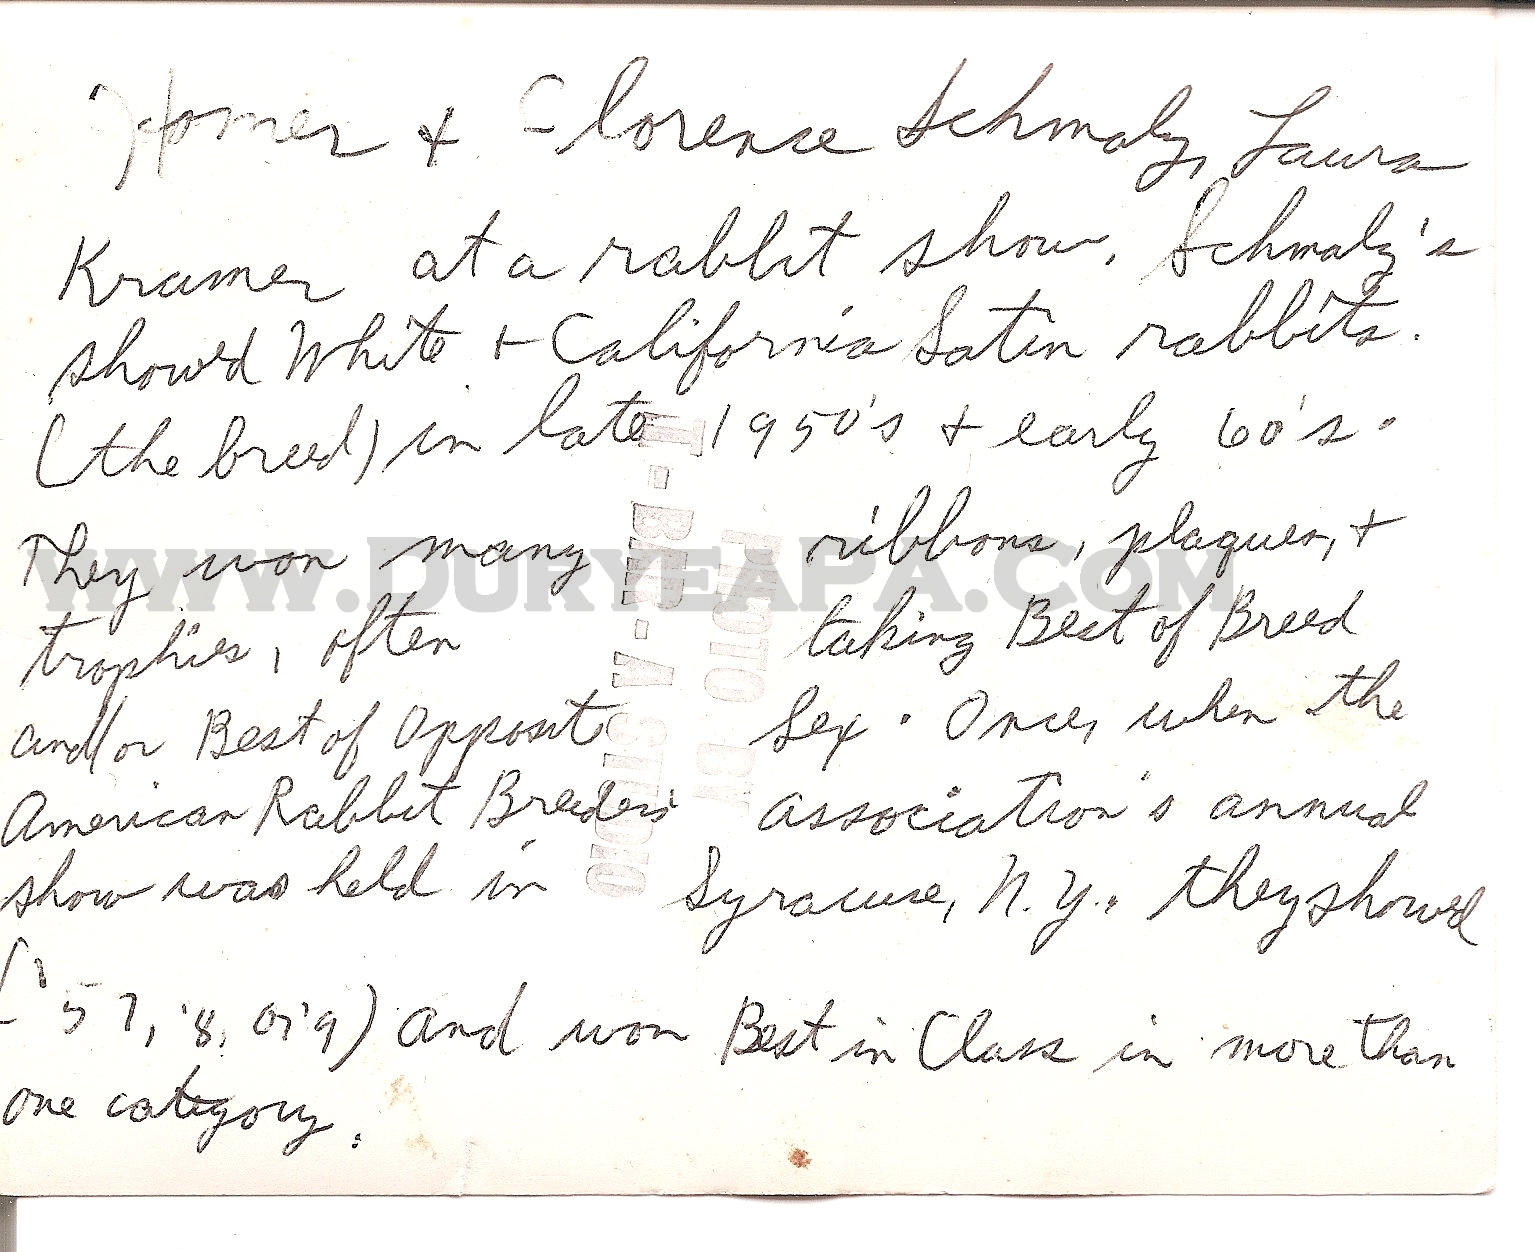 Homer + Florence Schmaly, Laura
Kramer at a rabbit show. Schmaly's
show'd White + California Satin rabbits.
(the breed) in late 1950's + early 60's.
They won many ribbons, plaques, +
trophies, often taking Best of Breed
and/or Best of Opposite Sex. Once, when the
American Rabbit Breeders' association's annual
show was held in Syracuse, N.Y., they show'd
('57, '8, or '9) and won Best in Class in more than
one category.
PHOTO BY
T-BAR-A STUDIO
www.DuryeaPA.com